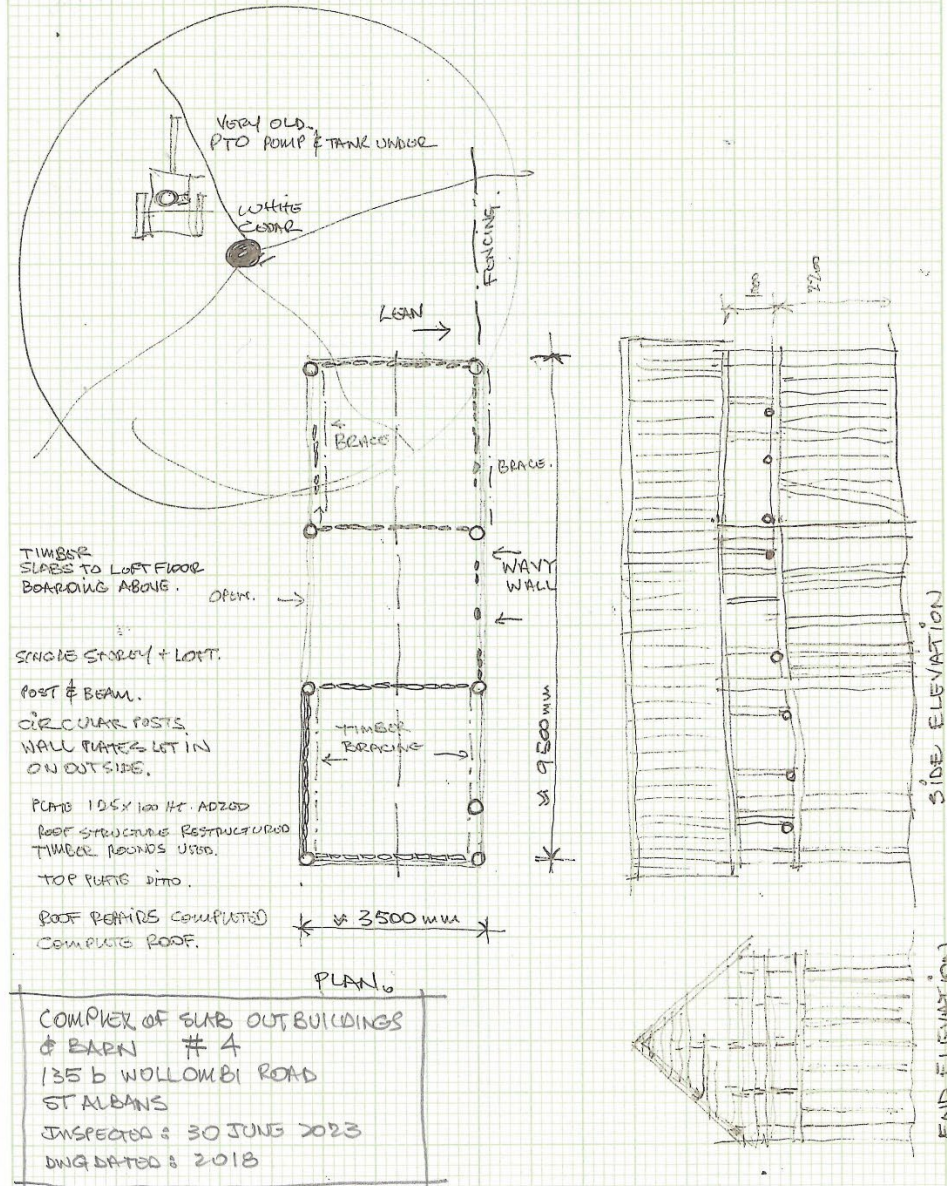 VERY OLD.
PTO PUMP & TANK UNDER
WHITE
CEDAR
FENCING.
LEAN
BRACE
BRACE.
TIMBER
SLABS TO LOFT FLOOR
BOARDING ABOVE.
OPEN.
WAVY
WALL
SINGLE STOREY + LOFT.
POST & BEAM.
CIRCULAR POSTS.
WALL PLATES LET IN
ON OUTSIDE.
TIMBER
BRACING
PLATE 125 x 100 HT. ADZED
ROOF STRUCTURE RESTRUCTURED
TIMBER ROUNDS USED.
TOP PLATE DITTO.
ROOF REPAIRS COMPLETED
COMPLETE ROOF.
≈ 3500 mm
≈ 9500 mm
PLAN.
2200
SIDE ELEVATION
END ELEVATION
COMPLEX OF SLAB OUTBUILDINGS
& BARN # 4
135 b WOLLOMBI ROAD
ST ALBANS
INSPECTED : 30 JUNE 2023
DWG DATED : 2018